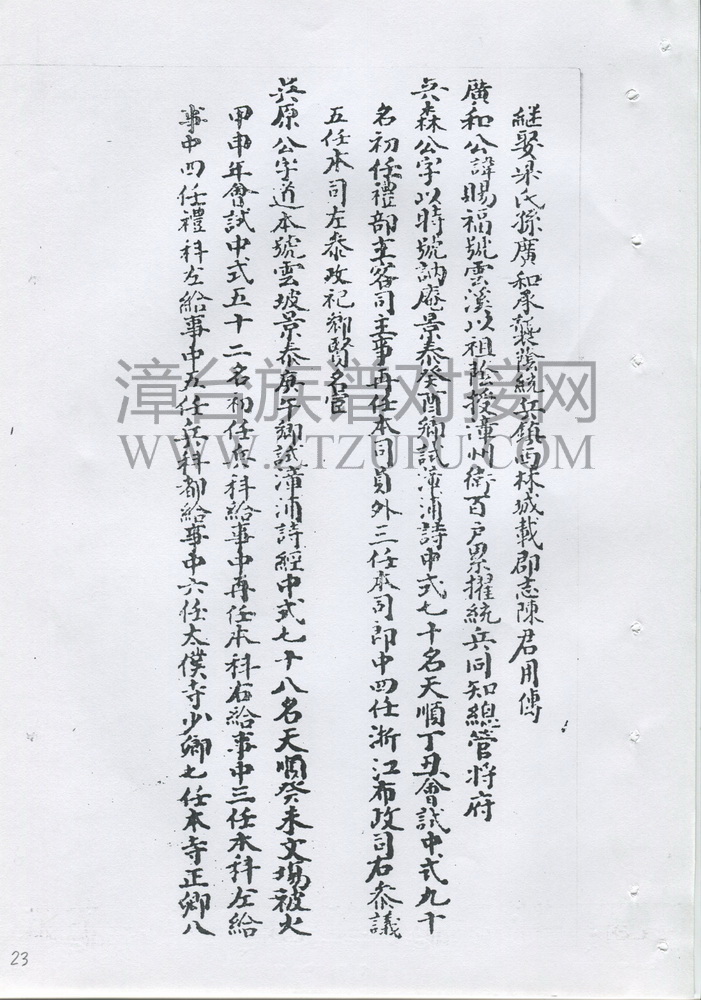 継娶梁氏孫廣和承襲蔭統兵鎮西林城載郡志陳君用傳
廣和公諱賜福號雲溪以祖 授漳州衛百戶累擢統兵同知總管將府
森公字以時號訥庵景泰癸酉鄉試漳浦詩中式七十名天順丁丑會試中式九十
名初任禮部主客司主事再任本司員外三任本司郎中四任浙江布政司右叅議
五任本司左叅政祀鄉賢名宦
原公字道本號雲坡景泰庚午鄉試漳浦詩經中式七十八名天順癸未文場被火
甲申年會試中式五十二名初任兵科給事中再任本科右給事中三任本科左給
事中四任禮科左給事中五任兵科都給事中六任太僕寺少卿七任本寺正卿八
漳台族谱对接网
23